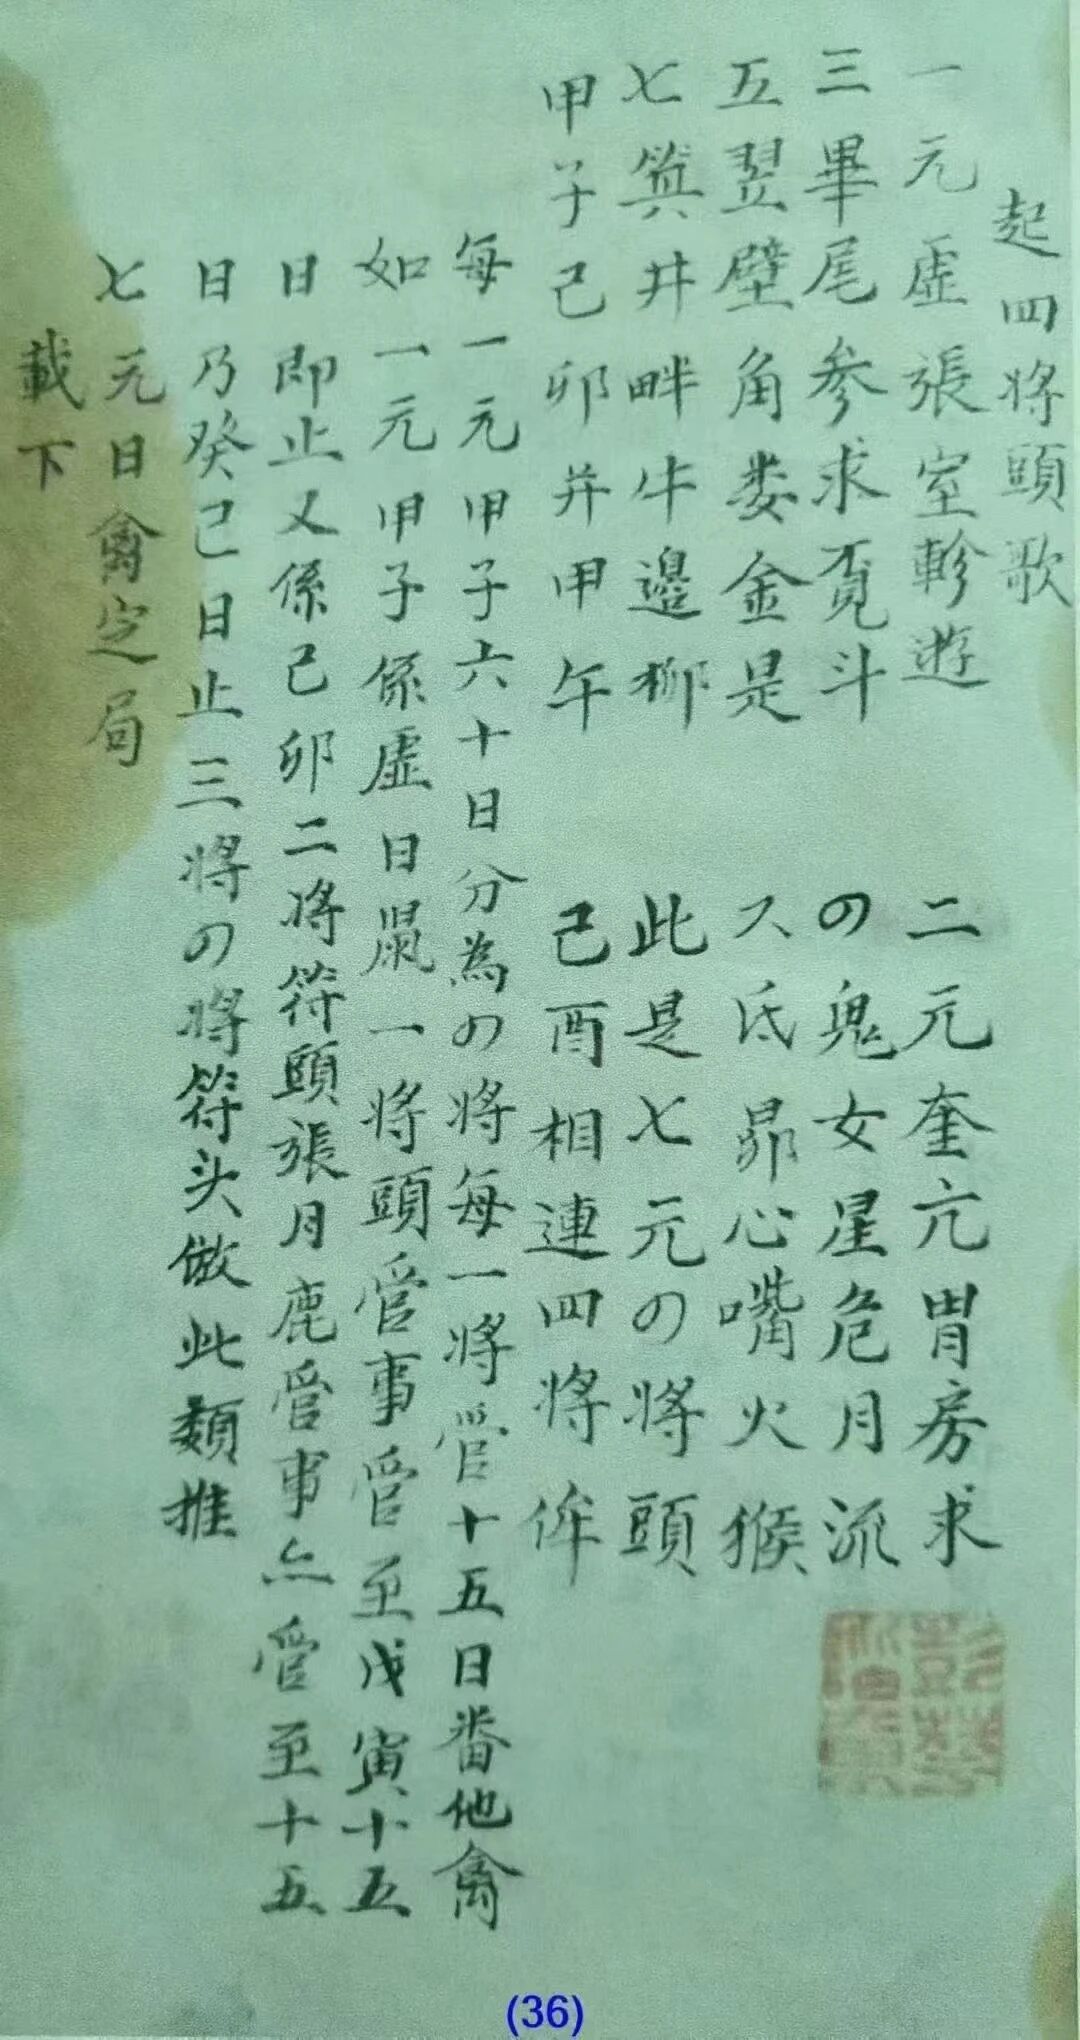 起四将頭歌
一元虚張室軫遊　二元奎亢胃房求
三畢尾参求覓斗　の鬼女星危月派
五翌壁角娄金是　六氐昴心嘴火猴
七箕井畔牛邉柳　此是七元の将頭
甲子己卯并甲午　己酉相連四將侔
每一元甲子六十日分為の将每一将管十五日畨他禽
如一元甲子係虚日鼠一将頭管事管至戊寅十五
日即止又係己卯二将符頭張月鹿管事亦管至十五
日乃癸巳日止三将の将符头倣此類推
七元日禽定局
載下
(36)